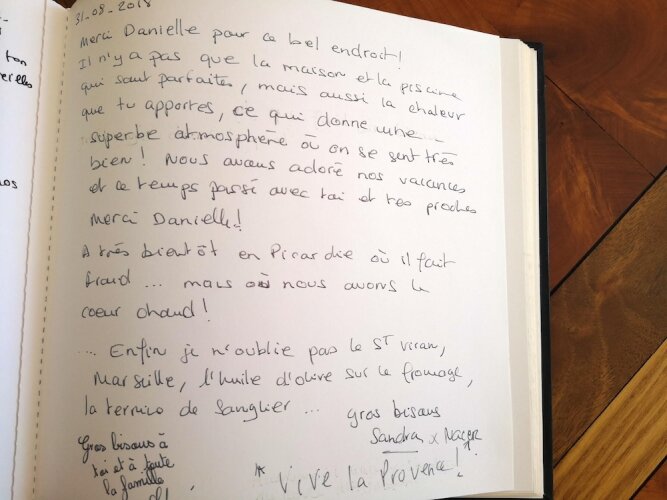 31-08-2018
Merci Danielle pour ce bel endroit!
Il n'y a pas que la maison et la piscine
qui sont parfaites, mais aussi la chaleur
que tu apportes, ce qui donne une
superbe atmosphère où on se sent très
bien! Nous avons adoré nos vacances
et ce temps passé avec toi et tes proches
Merci Danielle!
A très bientôt en Picardie où il fait
froid ... mais où nous avons le
coeur chaud!
.... Enfin je n'oublie pas le St Viran,
Marseille, l'huile d'olive sur le fromage,
la terrine de sanglier ...
gros bisous
Sandra x
Gros bisous à
toi et à toute
la famille
Vive la Provence!